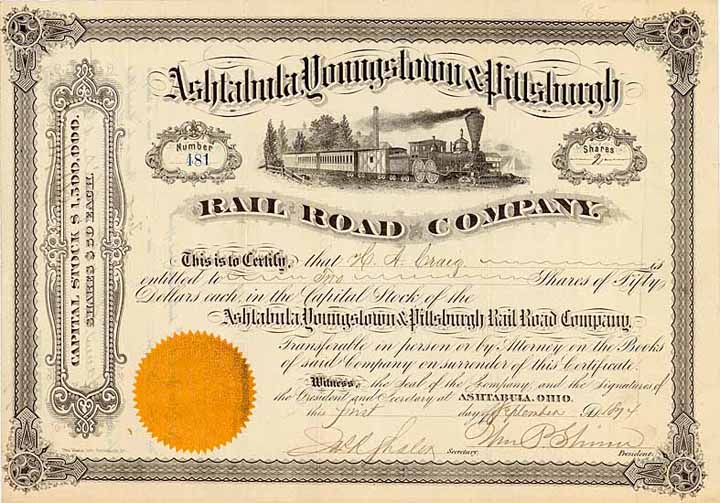 Ashtabula, Youngstown & Pittsburgh
Number
481
Shares
2
RAIL ROAD COMPANY.
CAPITAL STOCK $1,500,000.
SHARES $50 EACH.
This is to Certify, that H. A. Craig is
entitled to Two Shares of Fifty
Dollars each, in the Capital Stock of the
Ashtabula, Youngstown & Pittsburgh Rail Road Company.
Transferable in person or by Attorney on the Books
of said Company on surrender of this Certificate.
Witness, the Seal of the Company, and the Signatures of
the President and Secretary at ASHTABULA, OHIO.
this first day of September A.D. 1874
Secretary.
President.